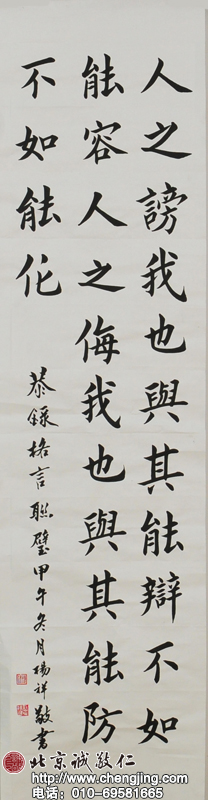 人之謗我也與其能辯不如
能容人之侮我也與其能防
不如能化
恭錄格言聯璧甲午冬月楊祥敬書
北京诚敬仁
www.chengjing.com
电话：010-69581665